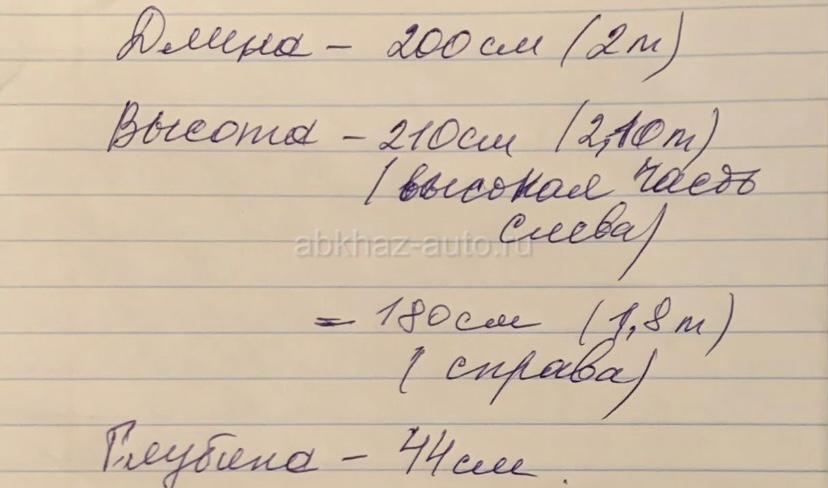 Длина - 200см (2м)
Высота - 210см (2,10м)
(высокая часть
слева)
abkhaz-auto.ru
= 180см (1,8м)
(справа)
Глубина - 44см.